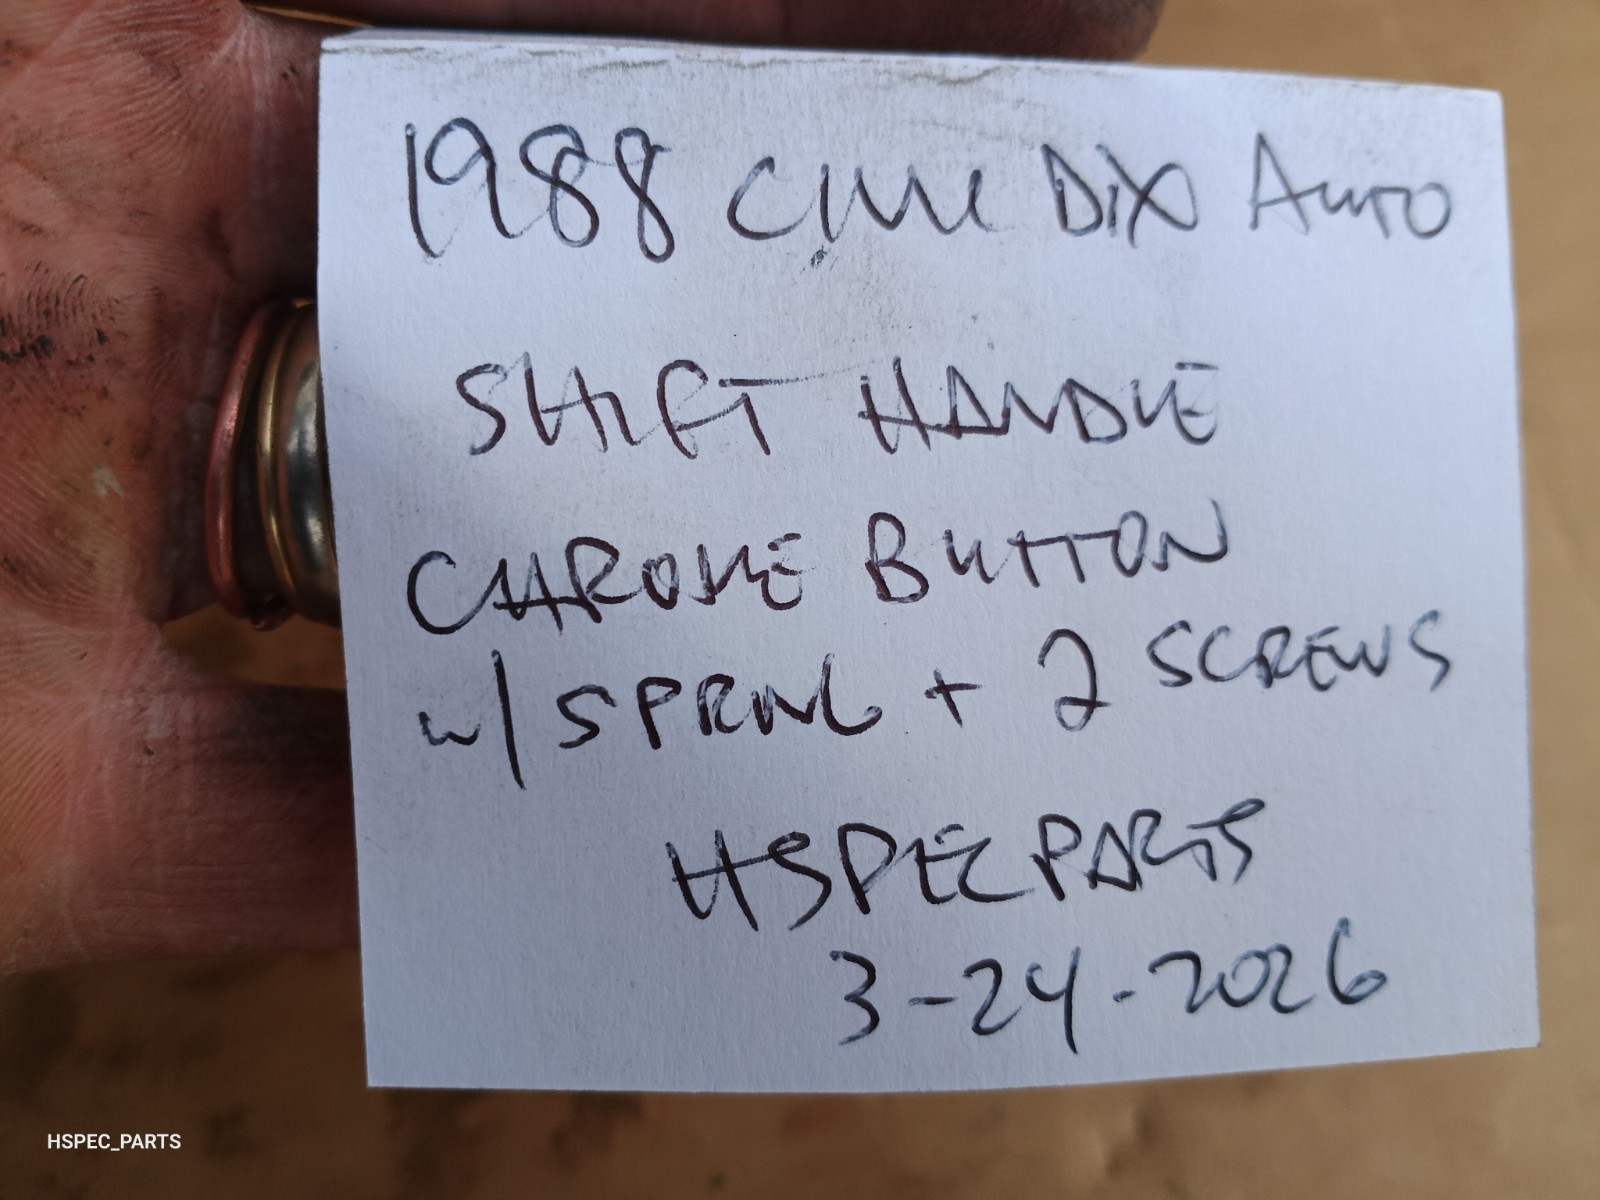 1988 CIVIC DIX AUTO
SHIFT HANDLE
CHROME BUTTON
W/ SPRING + 2 SCREWS
HSPECPARTS
3-24-2026
HSPEC_PARTS